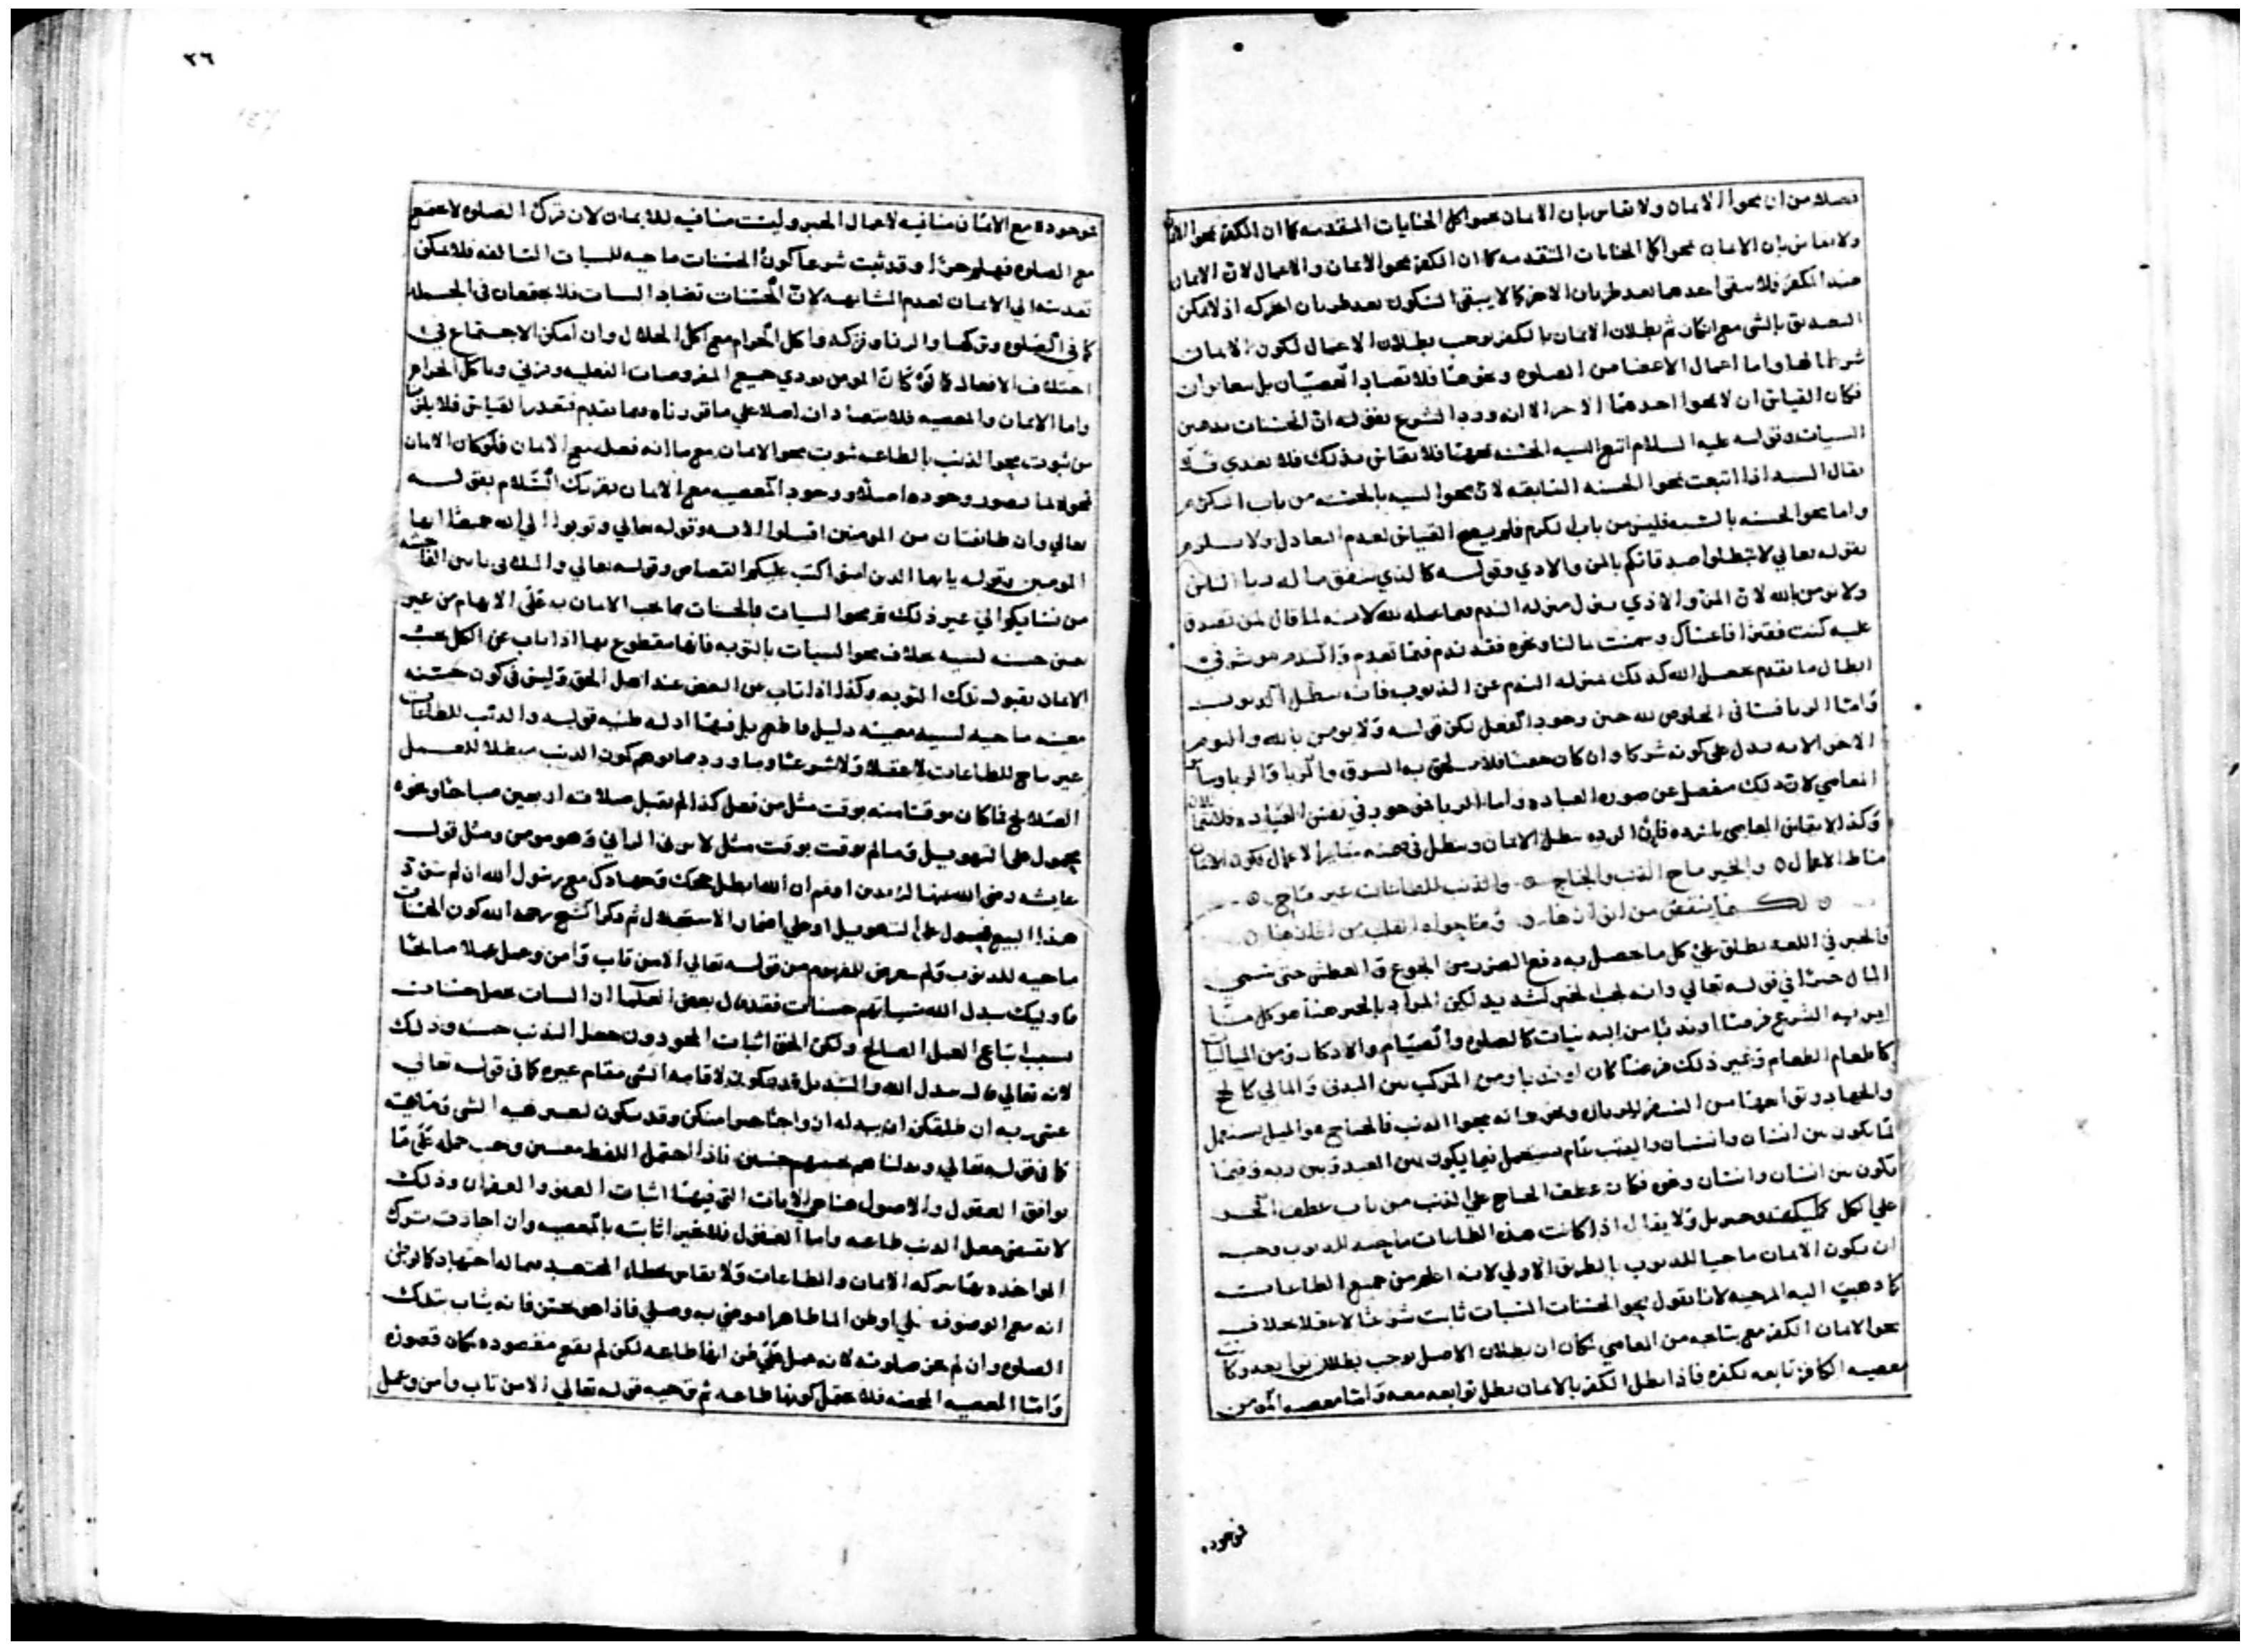 فضلا من ان يمحوا الايمان ولا يقاس بان الايمان يمحوا كل الجنايات المتقدمه كما ان الكفر يمحوا الايمان
ولا يقاس بان الايمان يمحوا كل الجنايات المتقدمه كما ان الكفر يمحوا الايمان والاعمال لان الايمان
ضد الكفر فلا يبقى احدهما بعد طريان الاخر كما لا يبقى السكون بعد طريان الحركه اذ لا يمكن
التصديق بالشى مع انكاره ثم بطلان الايمان بالكفر يوجب بطلان الاعمال لكون الايمان
شرطا لها واما اعمال الاعضا من الصلوه ونحوها فلا تضاد العصيان بل معايرات
فكان القياس ان لا يمحوا احدهما الاخر الا انه ورد الشرع بقوله ان الحسنات يذهبن
السيات وقوله عليه السلام اتبع السيه الحسنه تمحها فلا يقاس بذلك فلا تعدي
يقال السيه اذا اتبعت تمحوا الحسنه السابقه لان محوا السيه بالحسنه من باب الكرم
واما محوا الحسنه بالسيه فليس من باب الكرم فلم يصح القياس لعدم التعادل ولا يلزم
بقوله تعالي لا تبطلوا صدقاتكم بالمن والاذي وقوله كالذي ينفق ماله ريا الناس
ولا يومن بالله لان المن والاذي ينزل منزله الندم بما عمله لله لانه لما قال لمن تصدق
عليه كنت فقيرا فاغناك وسمنت بمالنا ونحوه فقد ندم فيما تقدم والندم موثر في
ابطال ما تقدم بجعل الله كذلك بمنزله الندم عن الذنوب فانه يبطل الذنوب
وامّا الريا فينافى الخلوص لله حين وجود الفعل لكن قوله ولا يومن بالله واليوم
الاخر الايه يدل على كونه شركا وان كان خفيا فلا يلحق به السرق والزنا والربا وساير
المعاصي لان ذلك منفصل عن صوره العباده واما الريا فموجود في نفس العباده
وكذا لا يقاس المعاصى بالرده فان الرده تبطل الايمان وتبطل في ضمنه ساير الاعمال لكون الايمان
مناط الاعمال ٥ والخير ماح الذنب والجناح ٥ والذنب للطاعات غير ماح ٥
والخير في اللغه يطلق علي كل ما حصل به دفع الضرر من الجوع والعطش حتى سمي
المال خيرا في قوله تعالي وانه لحب الخير لشديد لكن المراد بالخير هنا هو كل مّا
امر به الشرع فرضا او ندبا من البدنيات كالصلوه والصيام والاذكار ومن الماليات
كاطعام الطعام وغير ذلك فرضا كان او ندبا ومن المركب من البدنى والمالي كالحج
والجهاد وتواصلها من السفر للوبال ونحوها انه يمحوا الذنب فالجناح هو الميل يستعمل
فيما يكون بين انسان وانسان والذنب عام يستعمل فيما يكون بين العبد وبين ربه وفيما
يكون بين انسان وانسان وغير فكان عطف الجناح علي الذنب من باب عطف الجزء
علي الكل ولا يقال اذا كانت هذه الطاعات ماحيه للذنوب وجب
ان يكون الايمان ماحيا للذنوب بالطريق الاولي لانه اعلي من جميع الطاعات
كما ذهبت اليه المرجيه لانا نقول محو الحسنات السيات ثابت شرعا لا عقلا بخلاف
محو الايمان الكفر مع ما تبعه من المعاصي لمكان ان بطلان الاصل يوجب بطلان توابعه وكانت
معصيه الكافر تابعه لكفره فاذا بطل الكفر بالايمان بطل توابعه معه وامّا معصيه المومن
فوجوده
٣٦
فوجوده مع الايمان منافيه لاعمال الخير وليست منافيه للايمان لان ترك الصلوه لا يجتمع
مع الصلوه فهلم جرّا وقد ثبت شرعا كون الحسنات ماحيه للسيات السالفه فلا يمكن
تعديته الي الايمان لعدم المشابهه لان الحسنات تضاد السيات فلا يجتمعان في الجمله
كما في الصلوه وتركها والزنا وتركه واكل الحرام مع اكل الحلال وان امكن الاجتماع في
اختلاف الافعال كما ترى كان المومن يودي جميع المفروضات الفعليه ويزني وياكل الحرام
واما الايمان والمعصيه فلا يتضادان اصلا علي ما قررناه فيما تقدم فتعذر القياس فلا يلزمنا
من ثبوت محو الذنب بالطاعه ثبوت محو الايمان مع ما انه فصل مع الايمان فلو كان الايمان
محوا لها لما تصور وجوده اصلا ووجود المعصيه مع الايمان بقوله
تعالي وان طايفتان من المومنين اقتتلوا الايه وقوله تعالي وتوبوا الي الله جميعا ايها
المومنين وقوله يايها الذين امنوا كتب عليكم القصاص وقوله تعالي واللاتى ياتين الفاحشه
من نسايكم الي غير ذلك ثم محوا السيات بالحسنات مما يجب الايمان به علي الابهام من غير
تعيين حسنه لسيه بخلاف محوا السيات بالتوبه فانها مقطوع بها اذا تاب عن الكل يجب
الايمان بقبول تلك التوبه وكذا اذا تاب عن البعض عند اهل الحق وليس في كون حسنه
معينه ماحيه لسيه معينه دليل قاطع بل فيها ادله ظنيه قوله والذنب للطاعات
غير ماح للطاعات لا عقلا ولا شرعا وما ورد مما يوهم كون الذنب مبطلا للعمل
الصالح فما كان موقتا منه بوقت مثل من فعل كذا لم تقبل صلاته اربعين صباحا ونحوه
محمول على التهويل وما لم يوقت بوقت مثل لا يزنى الزاني وهو مومن ومثل قول
عايشه رضي الله عنها لزيد بن ارقم ان الله ابطل حجك وجهادك مع رسول الله ان لم تتب
هذا البيع فمحمول على التهويل او علي اضمار الاستحلال ثم ذكر الشيخ رحمه الله كون الحسنات
ماحيه للذنوب ولم يتعرض للمفهوم من قوله تعالي الا من تاب وآمن وعمل عملا صالحا
فاوليك يبدل الله سياتهم حسنات فقد قال بعض العلما ان السيات تجعل حسنات
بسبب اتباع العمل الصالح ولكن الحق اثبات المحو دون جعل الذنب حسنه وذلك
لانه تعالي قال يبدل الله والتبديل قد يكون لاقامه الشى مقام غيره كما فى قوله تعالي
عسى ربه ان طلقكن ان يبدله ازواجا خيرا منكن وقد يكون لتغيير الشى وماهيته
كما في قوله تعالي وبدلناهم بجنتيهم جنتين فاذا احتمل اللفظ معنيين وجب حمله علي ما
يوافق العقول والاصول هنا هي الايات التي فيها اثبات العفو والغفران وذلك
لا يقتضى جعل الذنب طاعه واما العقول فلا خير اثابته بالمعصيه وان اجازت ترك
المواخذه بها ببركه الايمان والطاعات ولا يقاس بخطاء المجتهد بماله اجتهاد كالوطى
انه مع الوضوء يلي او ظن الما طاهرا فتوضي به وصلي فاذا هو نجس فانه يثاب بتلك
الصلوه وان لم يجز صلوته لانه عمل علي ظن انها طاعه لكن لم يقع مقصوده لمكان قصوره
وامّا المعصيه المحضه فلا يعقل كونها طاعه ثم توجيه قوله تعالي الا من تاب وامن وعمل